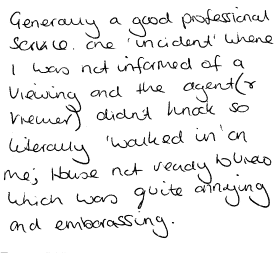 Generally a good professional
service. one 'incident' where
I was not informed of a
viewing and the agent (&
viewer) didn't knock so
literally 'walked in' on
me; House not ready to view
which was quite annoying
and embarassing.